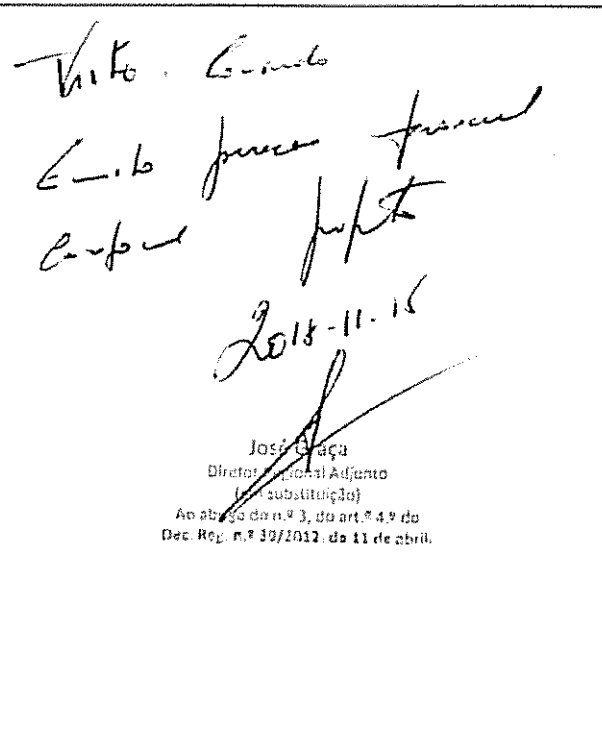 Visto. Concordo
Emito parecer favorável
conforme proposto
2018-11-15
José Graça
Diretor Regional Adjunto
(em substituição)
Ao abrigo do n.º 3, do art.º 4.º do
Dec. Reg. n.º 39/2012, de 11 de abril.